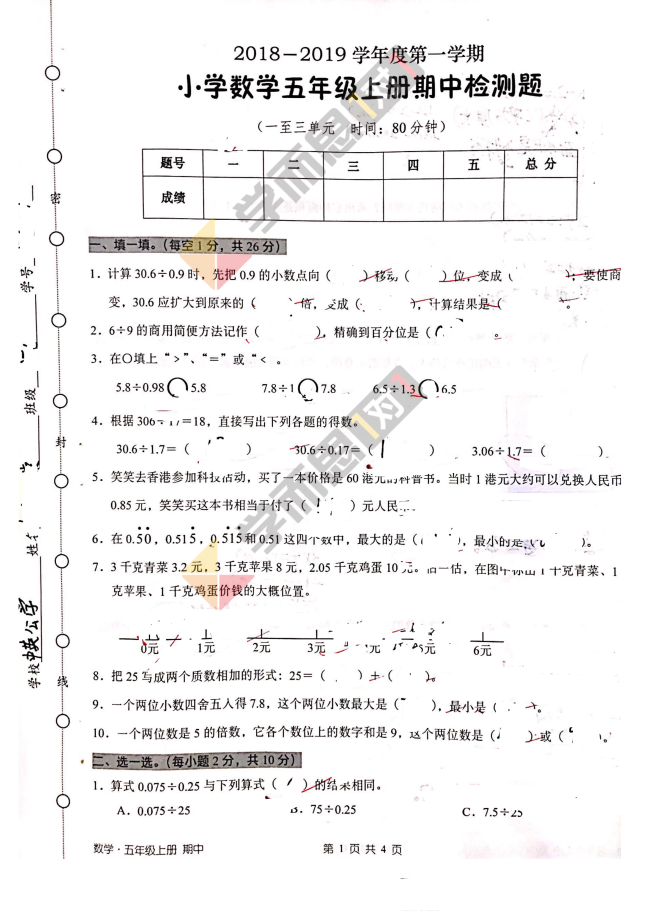 2018－2019 学年度第一学期
小学数学五年级上册期中检测题
（一至三单元 时间：80分钟）
题号 一 二 三 四 五 总分
成绩
一、填一填。（每空1分，共26分）
1．计算30.6÷0.9时，先把0.9的小数点向（ ）移动（ ）位，变成（ ）；要使商
变，30.6应扩大到原来的（ ）倍，变成（ ），计算结果是（ ）。
2．6÷9的商用简便方法记作（ ），精确到百分位是（ ）。
3．在○填上“＞”、“＝”或“＜ 。
5.8÷0.98○5.8 7.8÷1○7.8 6.5÷1.3○6.5
4．根据306÷17=18，直接写出下列各题的得数。
30.6÷1.7=（ ） 30.6÷0.17=（ ） 3.06÷1.7=（ ）
5．笑笑去香港参加科技活动，买了一本价格是60港元的科普书。当时1港元大约可以兑换人民币
0.85元，笑笑买这本书相当于付了（ ）元人民
6．在0.5̇0̇，0.515̇，0.5̇15̇和0.51这四个数中，最大的是（ ），最小的是（ ）。
7．3千克青菜3.2元，3千克苹果8元，2.05千克鸡蛋10元。估一估，在图中标出1千克青菜、1
克苹果、1千克鸡蛋价钱的大概位置。
0元 1元 2元 3元 元 元 6元
8．把25写成两个质数相加的形式：25=（ ）+（ ）。
9．一个两位小数四舍五入得7.8，这个两位小数最大是（ ），最小是（ ）。
10．一个两位数是5的倍数，它各个数位上的数字和是9，这个两位数是（ ）或（ ）。
二、选一选。（每小题2分，共10分）
1．算式0.075÷0.25与下列算式（ ）的结果相同。
A．0.075÷25 B．75÷0.25 C．7.5÷25
数学·五年级上册 期中 第1页共4页
学号
班级
姓名
学校
密
封
线
学而思1对1
学而思1对1